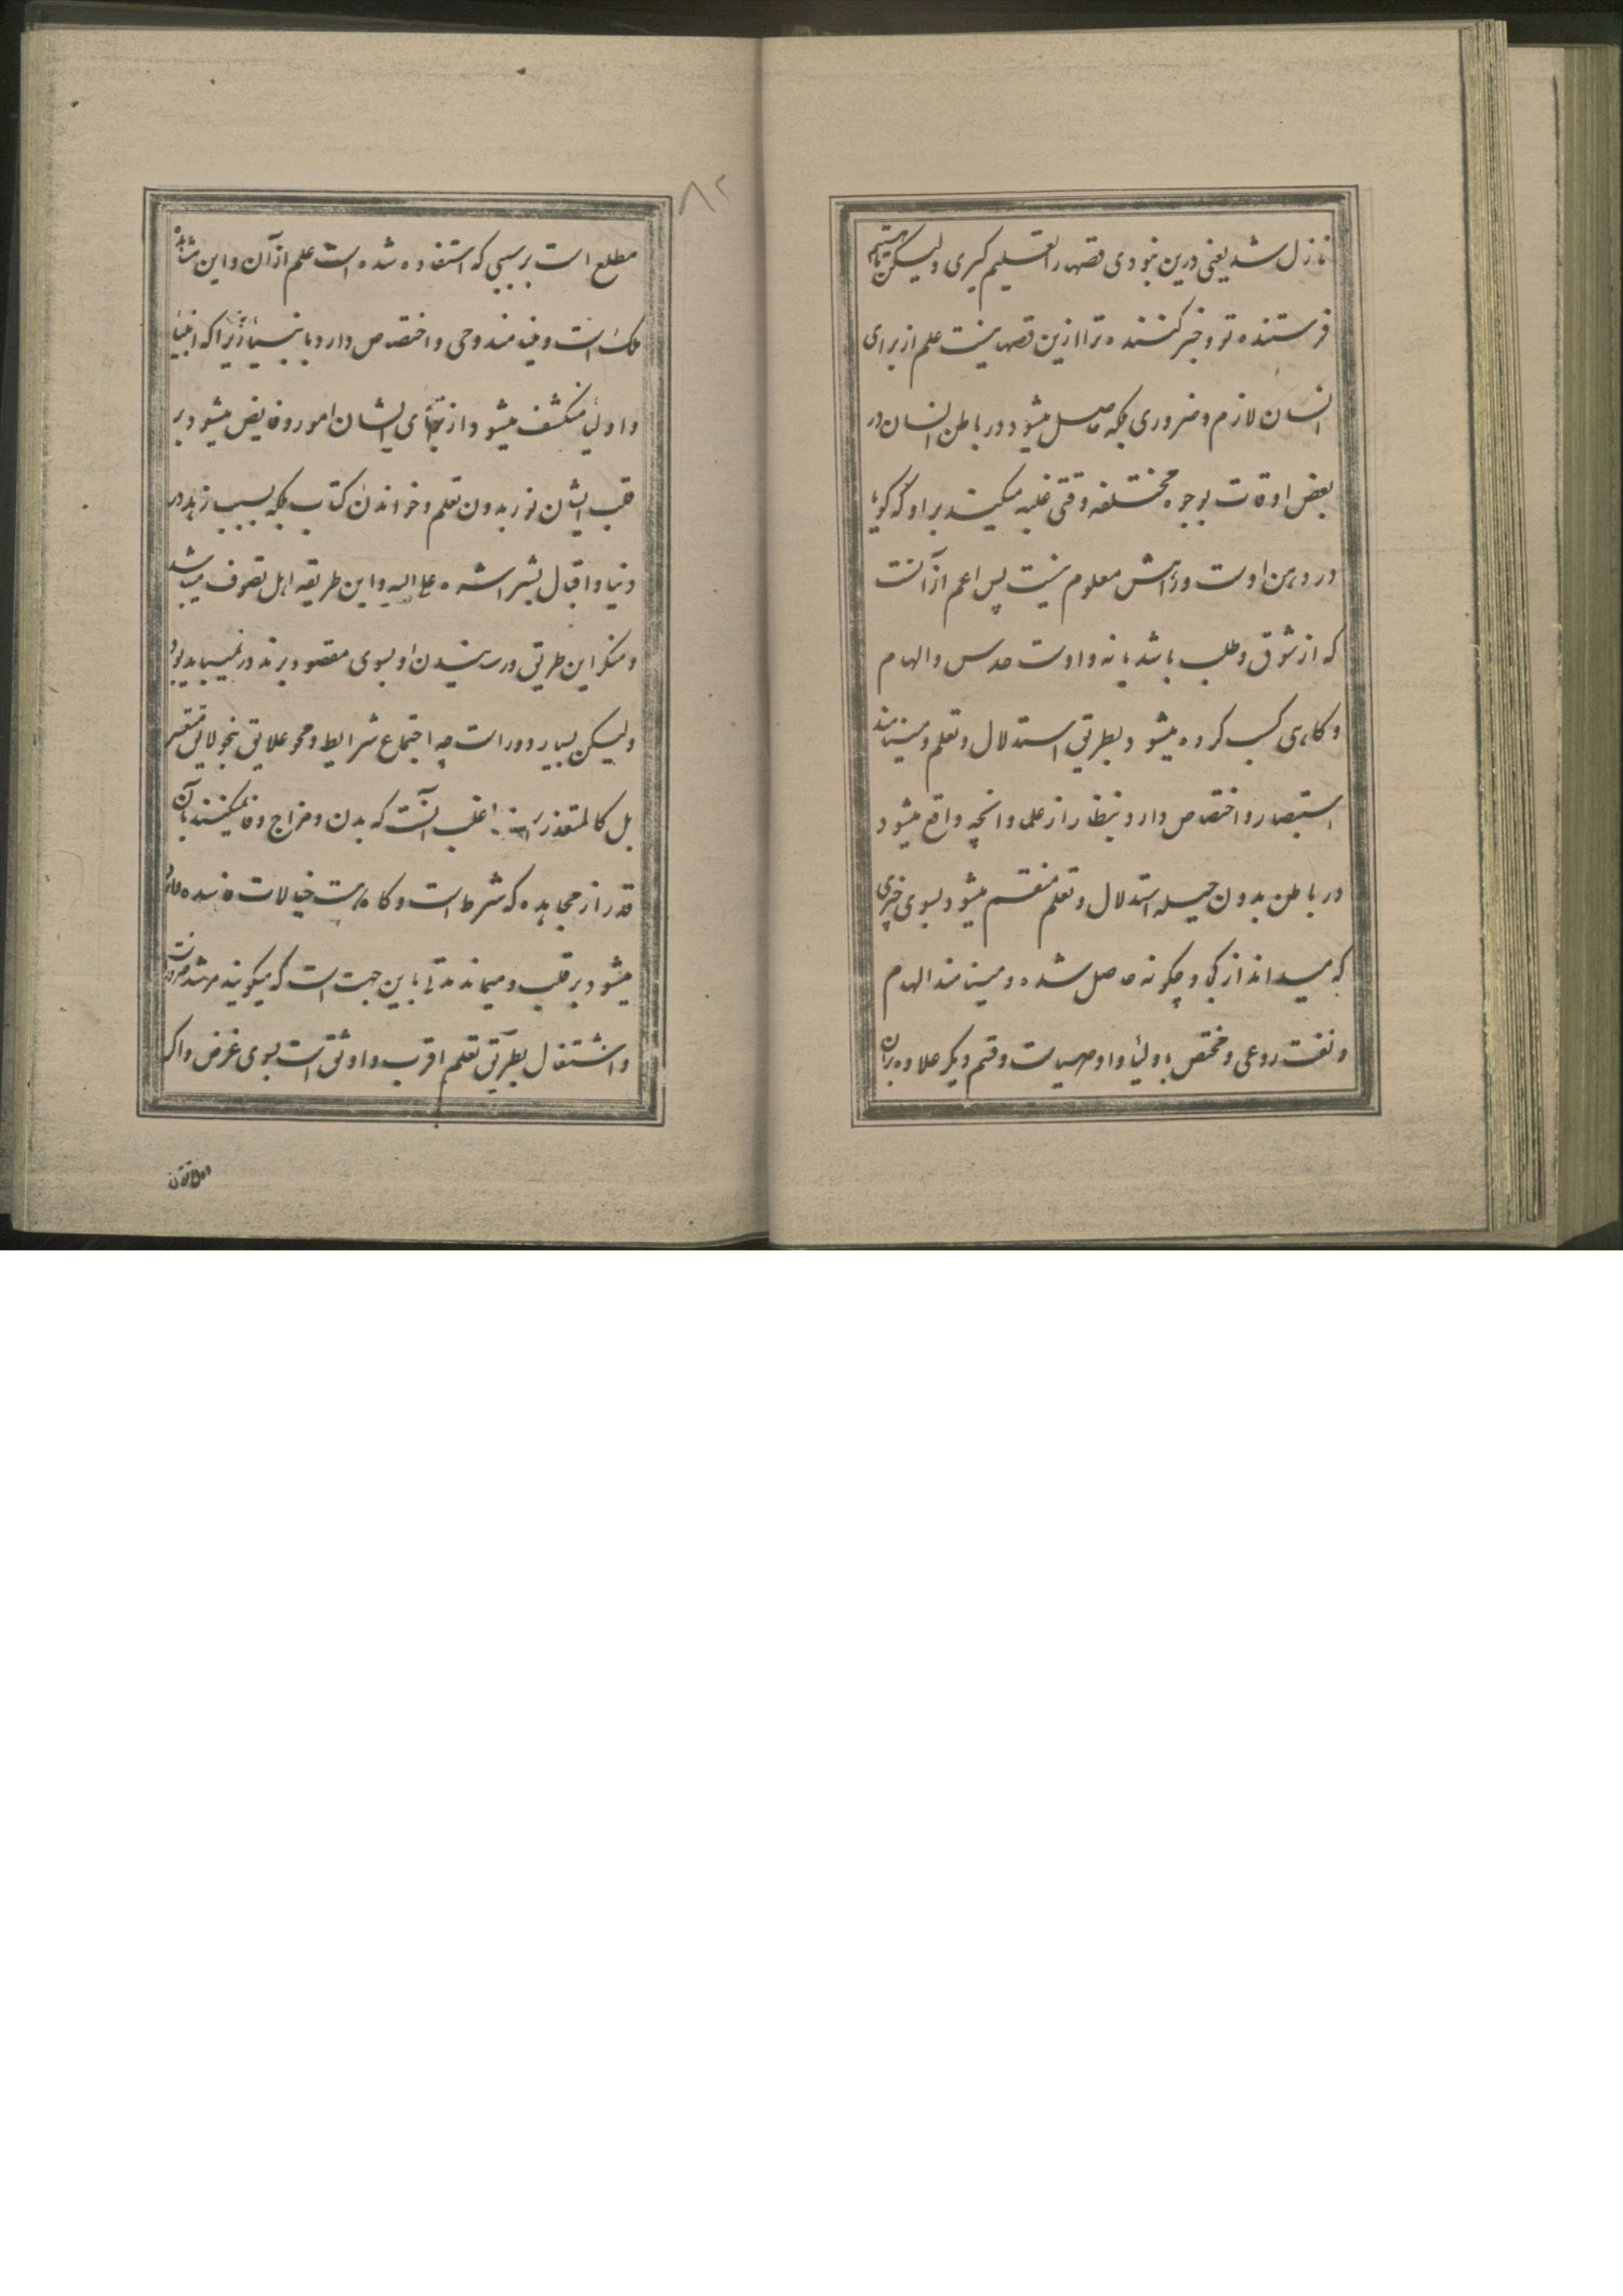 نازل شد یعنی درین نبودی قصها را تعلیم گیری ولیکن ما هستیم
فرستنده تو و خبر کننده ترا ازین قصها نیست علم از برای
انسان لازم و ضروری بلکه حاصل میشود در باطن انسان در
بعض اوقات بوجوه مختلفه وقتی غلبه میکند بر او که گویا
در و ذهن اوست و راهش معلوم نیست پس اعم از آنست
که از شوق و طلب باشد یا نه و اوست حدس والهام
و کاهی کسب کرده میشود بطریق استدلال و تعلم و مینامند
استبصار و اختصاص دارد بنظار از علما و انچه واقع میشود
در باطن بدون حیله استدلال و تعلم منقسم میشود بسوی خبری
که میداند از کجا و چکونه حاصل شده و مینامند الهام
و نفث روعی و مختص باولیا و اوصیاست و قسم دیکر علاوه بران
۸۲
مطلع است بر سببی که استفاده شده است علم از آن و این مشاهده
ملک است و مینامند وحی و اختصاص دارد بانبیا زیرا که انبیا
و اولیا منکشف میشود از برای ایشان امور و فایض میشود بر
قلب ایشان نور بدون تعلم و خواندن کتاب بلکه بسبب زهد در
دنیا و اقبال بشراشره علی الیه و این طریقه اهل تصوف میباشد
و منکر این طریق و رسیدن او بسوی مقصود بر ندور نمیباید بود
ولیکن بسیار دور است چه اجتماع شرایط و محو علایق بنحو لایق متعسر
بل کالمتعذر است اغلب آنست که بدن و مزاج وفا نمیکنند بآن
قدر از مجاهده که شرط است و کاه هست خیالات فاسده
میشود بر قلب و میماند مدتی باین جهت است که میکویند مرشد
و اشتغال بطریق تعلم اقرب و اوثق است بسوی غرض و اکر